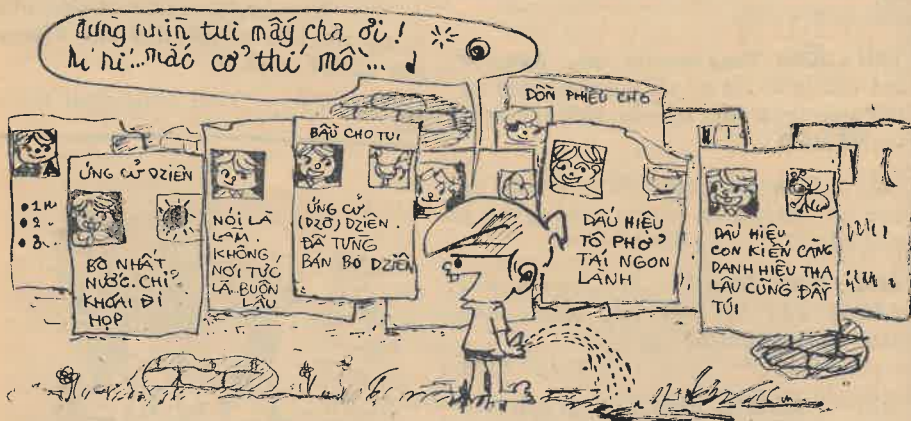 đừng nhìn tui mấy cha ơi!
hi hi... mắc cở thí mồ...
A
• 1
• 2
• 3
ỨNG CỬ DZIÊN
BỒ NHẬT
NƯỚC. CHỈ
KHOÁI ĐI
HỌP
NÓI LÀ
LÀM.
KHÔNG
NÓI TỨC
LÀ BUÔN
LẬU
BẦU CHO TUI
ỨNG CỬ
(DZỞ) DZIÊN.
ĐÃ TỪNG
BÁN BÒ DZIÊN
DỒN PHIẾU CHO
DẤU HIỆU
TÔ PHỞ
TÁI NGON
LÀNH
DẤU HIỆU
CON KIẾN CÀNG
DANH HIỆU THA
LÂU CŨNG ĐẦY
TÚI